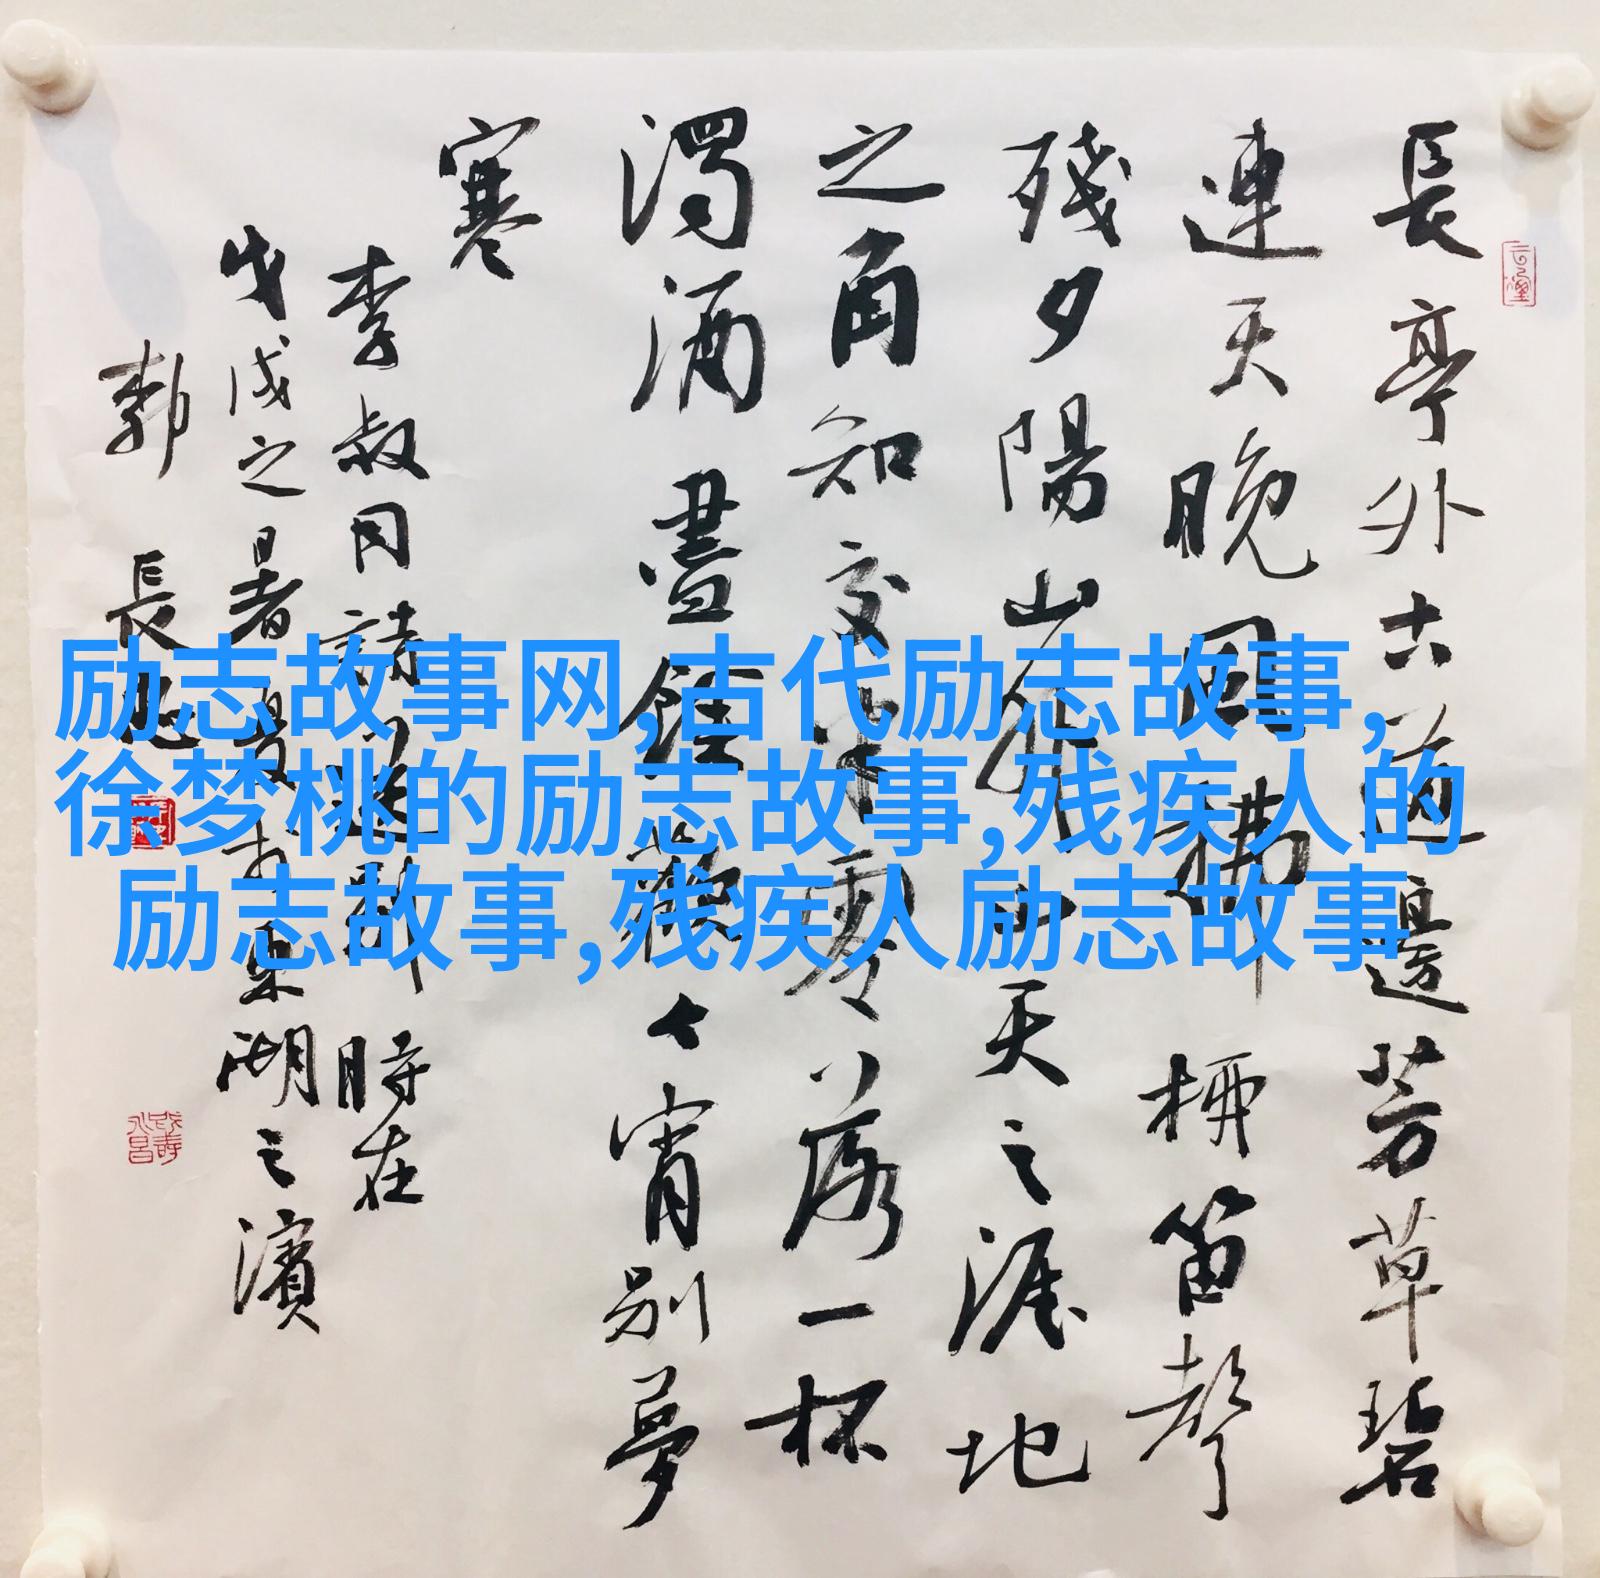 長亭外古道邊芳草碧
連天晚風拂柳笛聲
殘夕陽山外山天之涯地
之角知交半零落一杯
濁酒盡餘歡今宵別夢
寒
李叔同詩送別時在
戊戌之暑夏於東湖之濱
郭長
励志故事网,古代励志故事,
徐梦桃的励志故事,残疾人的
励志故事,残疾人励志故事